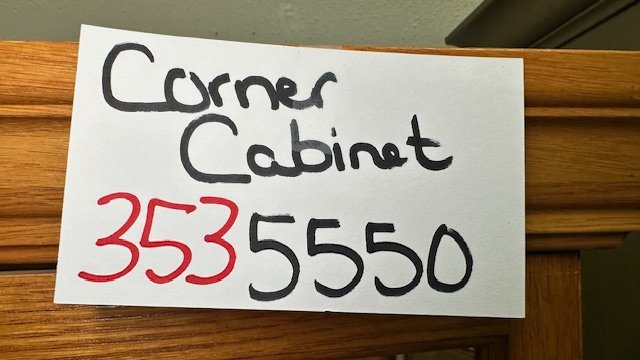 Corner
Cabinet
353 5550